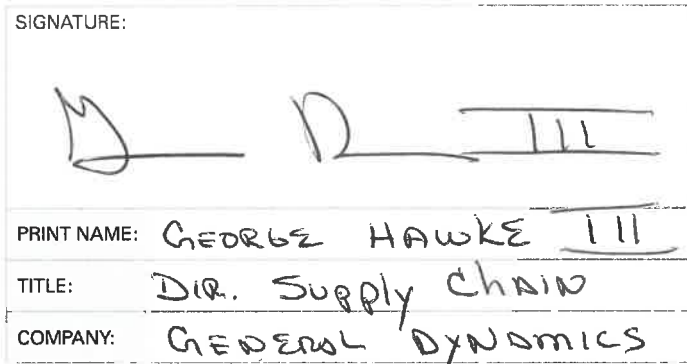 SIGNATURE:
III
PRINT NAME: GEORGE HAWKE III
TITLE: DIR. Supply Chain
COMPANY: GENERAL DYNAMICS